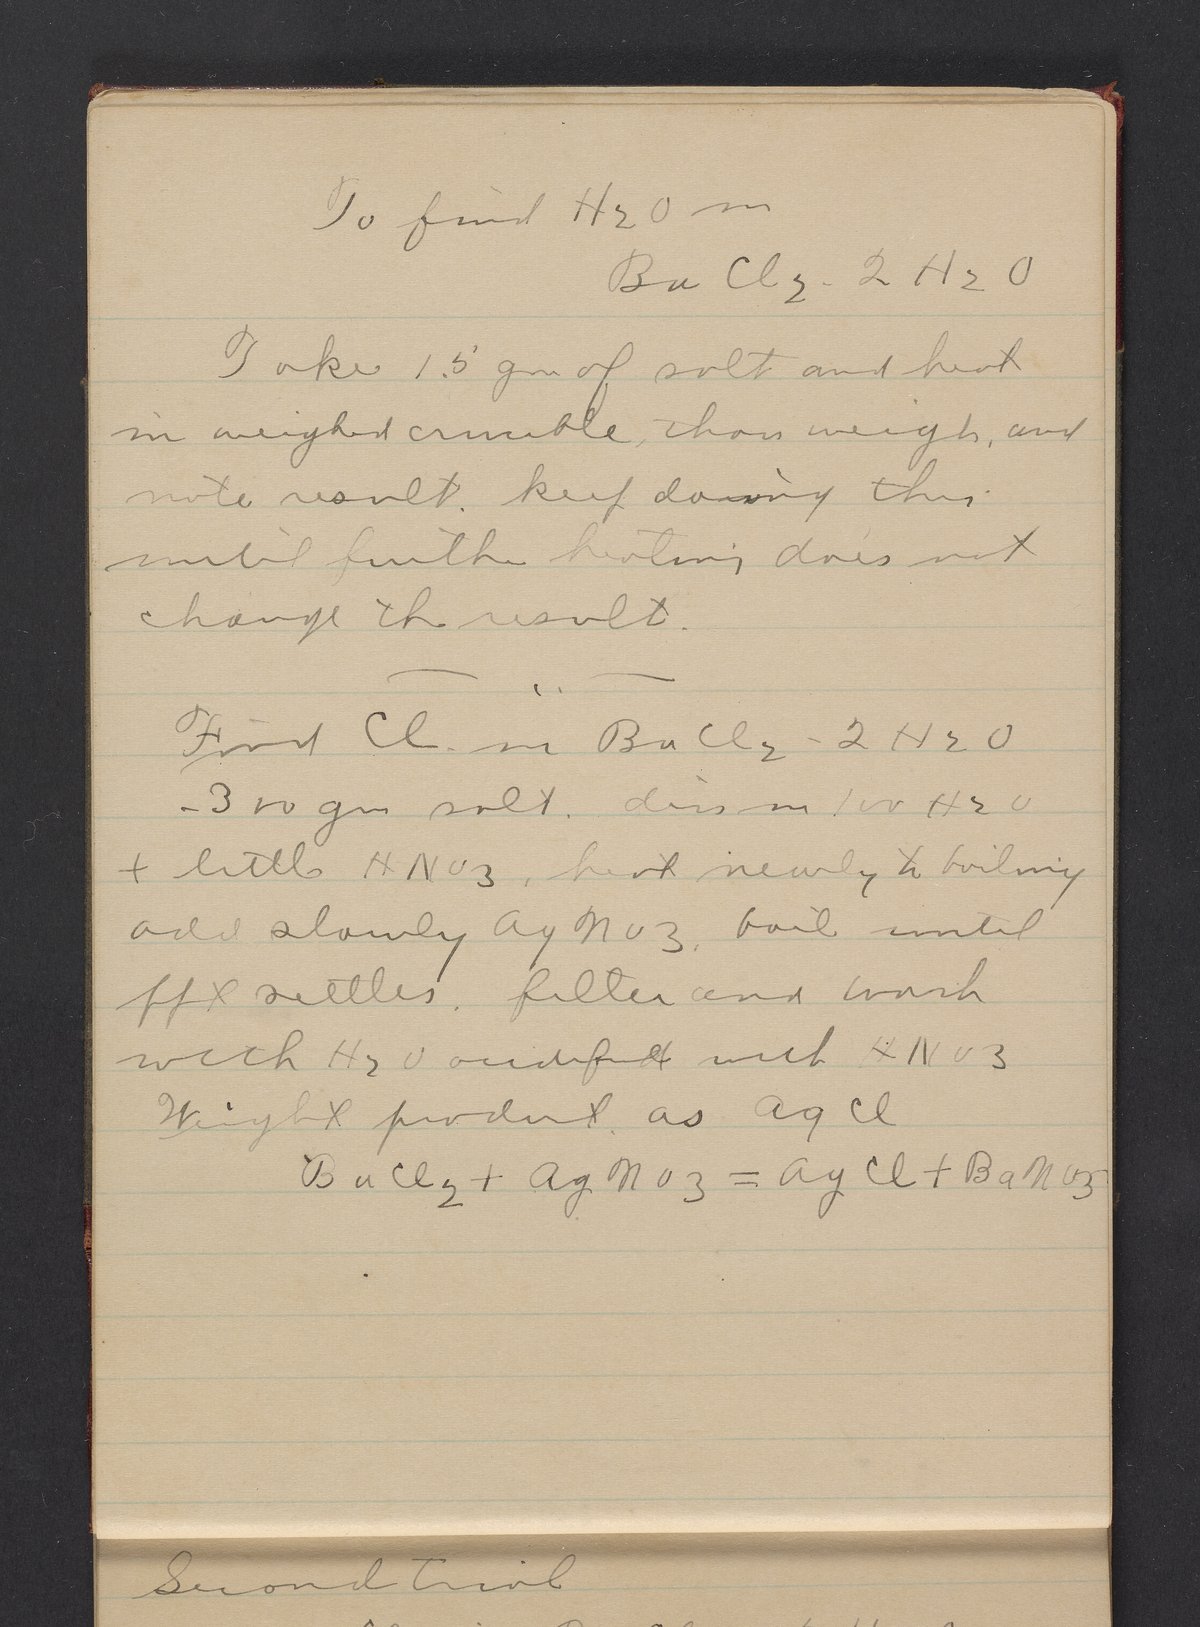 To find H2O in
BaCl2 - 2 H2O
Take 1.5 gm of salt and heat
in weighed crucible, then weigh, and
note result. keep doing this
until further heating does not
change the result.
Find Cl in BaCl2 - 2 H2O
.300 gm salt. diss in 100 H2O
+ little HNO3, heat nearly to boiling
add slowly AgNO3, boil until
ppt settles. filter and wash
with H2O acidified with HNO3
Weight product as AgCl
BaCl2 + AgNO3 = AgCl + BaNO3
Second trial